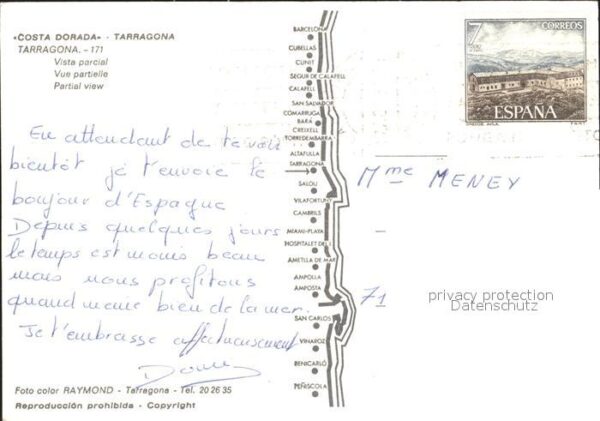 «COSTA DORADA» - TARRAGONA
TARRAGONA. - 171
Vista parcial
Vue partielle
Partial view
En attendant de te voir
bientôt je t'envoie le
bonjour d'Espagne
Depuis quelques jours
le temps est moins beau
mais nous profitons
quand meme bien de la mer.
Je t'embrasse affectueusement
Foto color RAYMOND - Tarragona - Tel. 20 26 35
Reproducción prohibida - Copyright
BARCELONA
CUBELLAS
CUNIT
SEGUR DE CALAFELL
CALAFELL
SAN SALVADOR
COMARRUGA
BARÁ
CREIXELL
TORREDEMBARRA
ALTAFULLA
TARRAGONA
SALOU
VILAFORTUNY
CAMBRILS
MIAMI-PLAYA
HOSPITALET DEL I.
AMETLLA DE MAR
AMPOLLA
AMPOSTA
SAN CARLOS
VINAROZ
BENICARLÓ
PEÑISCOLA
7
CORREOS
ESPAÑA
Mme MENEY
71
privacy protection
Datenschutz